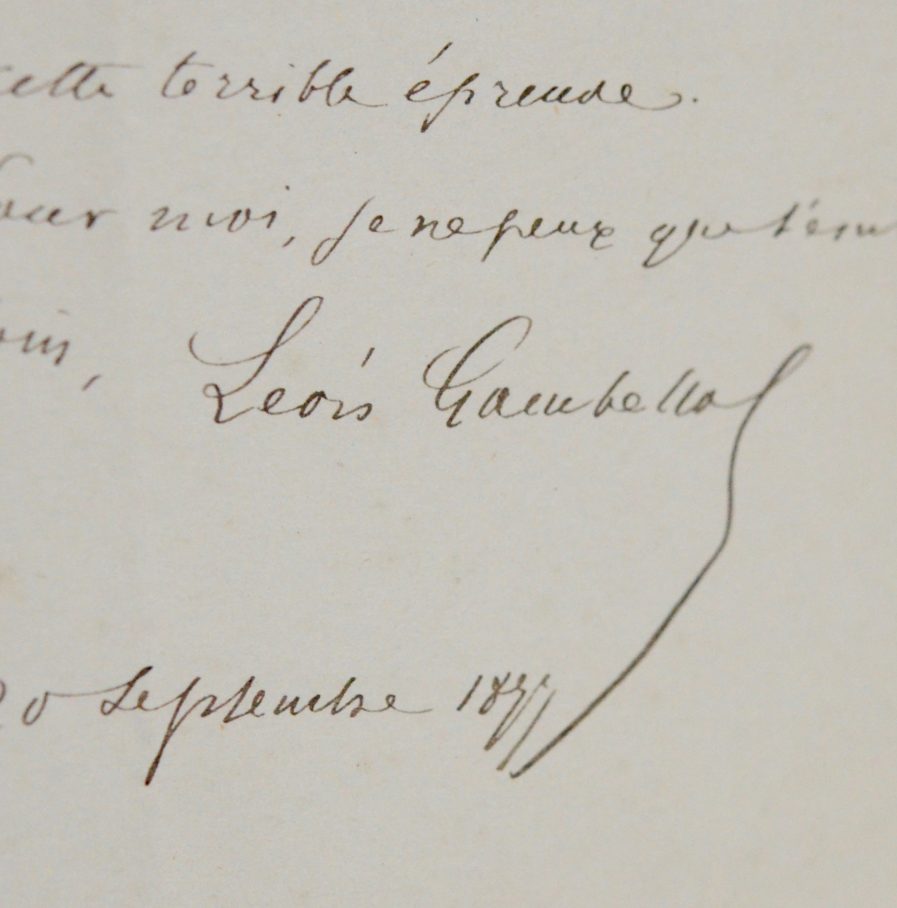 cette terrible épreuve.
Pour moi, je ne peux que t'em
Léon Gambetta
20 Septembre 1877